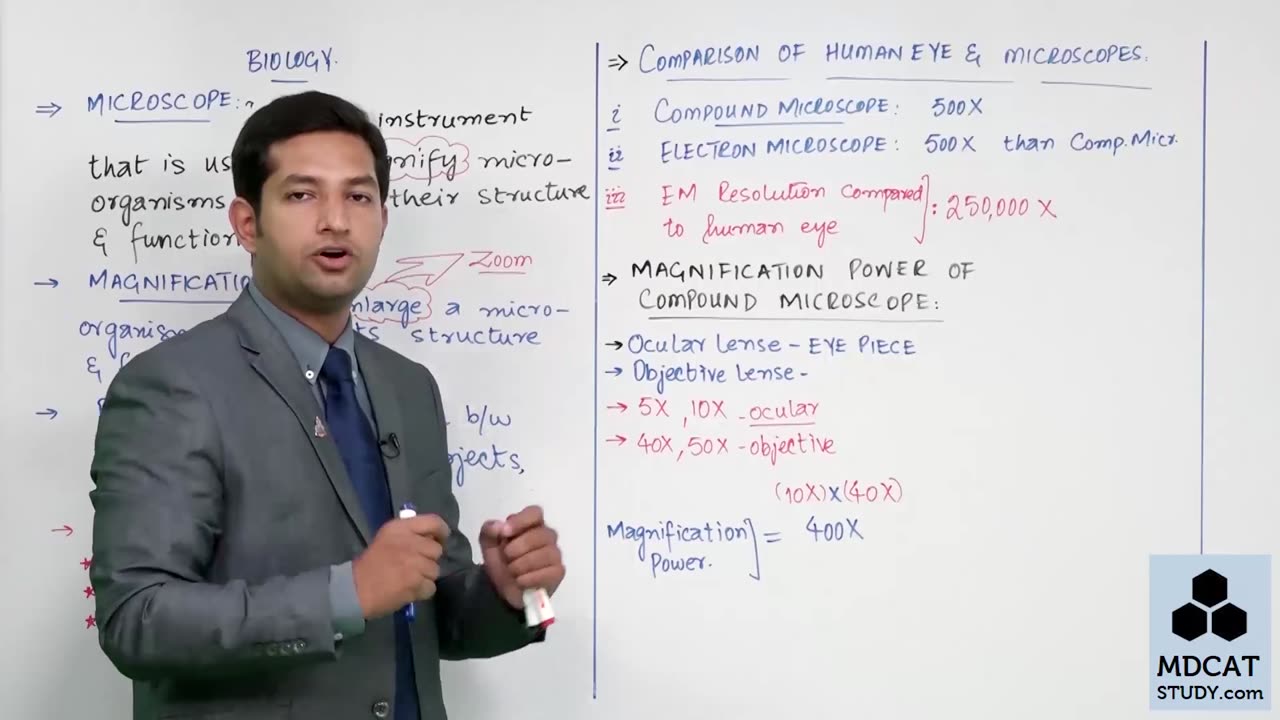 BIOLOGY.
⇒ MICROSCOPE:
instrument
that is us gnify micro-
organisms their structure
& function
→ MAGNIFICATIO
Zoom
nlarge a micro-
organism ts structure
&
→ b/w
ojects,
→
*
*
*
⇒ COMPARISON OF HUMAN EYE & MICROSCOPES.
i COMPOUND MICROSCOPE: 500X
ii ELECTRON MICROSCOPE: 500X than Comp. Micr.
iii EM Resolution Compared
to human eye ]: 250,000 X
⇒ MAGNIFICATION POWER OF
COMPOUND MICROSCOPE:
→ Ocular lense - EYE PIECE
→ Objective lense -
→ 5X, 10X - ocular
→ 40X, 50X - objective
(10X)x(40X)
Magnification
Power. ] = 400X
MDCAT
STUDY.com